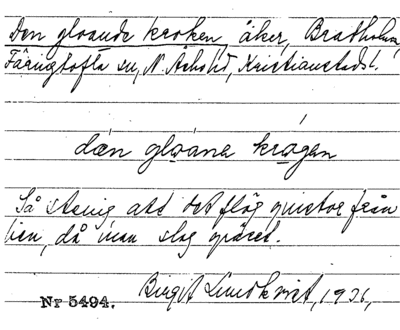 Den gloande kroken, åker, Bratholma,
Färingtofta sn, N. Åsbo hd, Kristianstads l.
dæn gloane krogen
Så stenig att det flög gnistor från
lien, då man slog gräset.
Nr 5494. Birgit Lundkvist, 1931,